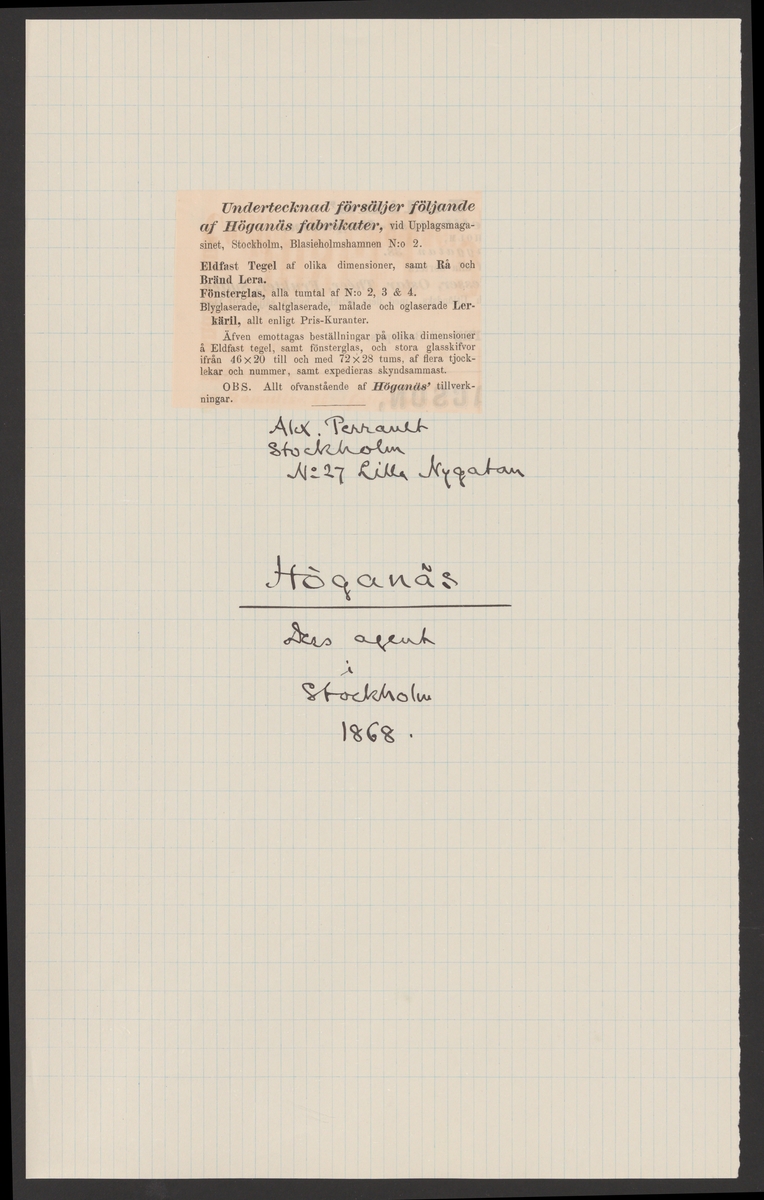 Undertecknad försäljer följande
af Höganäs fabrikater, vid Upplagsmaga-
sinet, Stockholm, Blasieholmshamnen N:o 2.
Eldfast Tegel af olika dimensioner, samt Rå och
Bränd Lera.
Fönsterglas, alla tumtal af N:o 2, 3 & 4.
Blyglaserade, saltglaserade, målade och oglaserade Ler-
käril, allt enligt Pris-Kuranter.
Äfven emottagas beställningar på olika dimensioner
å Eldfast tegel, samt fönsterglas, och stora glasskifvor
ifrån 46×20 till och med 72×28 tums, af flera tjock-
lekar och nummer, samt expedieras skyndsammast.
OBS. Allt ofvanstående af Höganäs' tillverk-
ningar.
Alex. Perrault
Stockholm
No 27 Lilla Nygatan
Höganäs
Dess agent
i
Stockholm
1868.